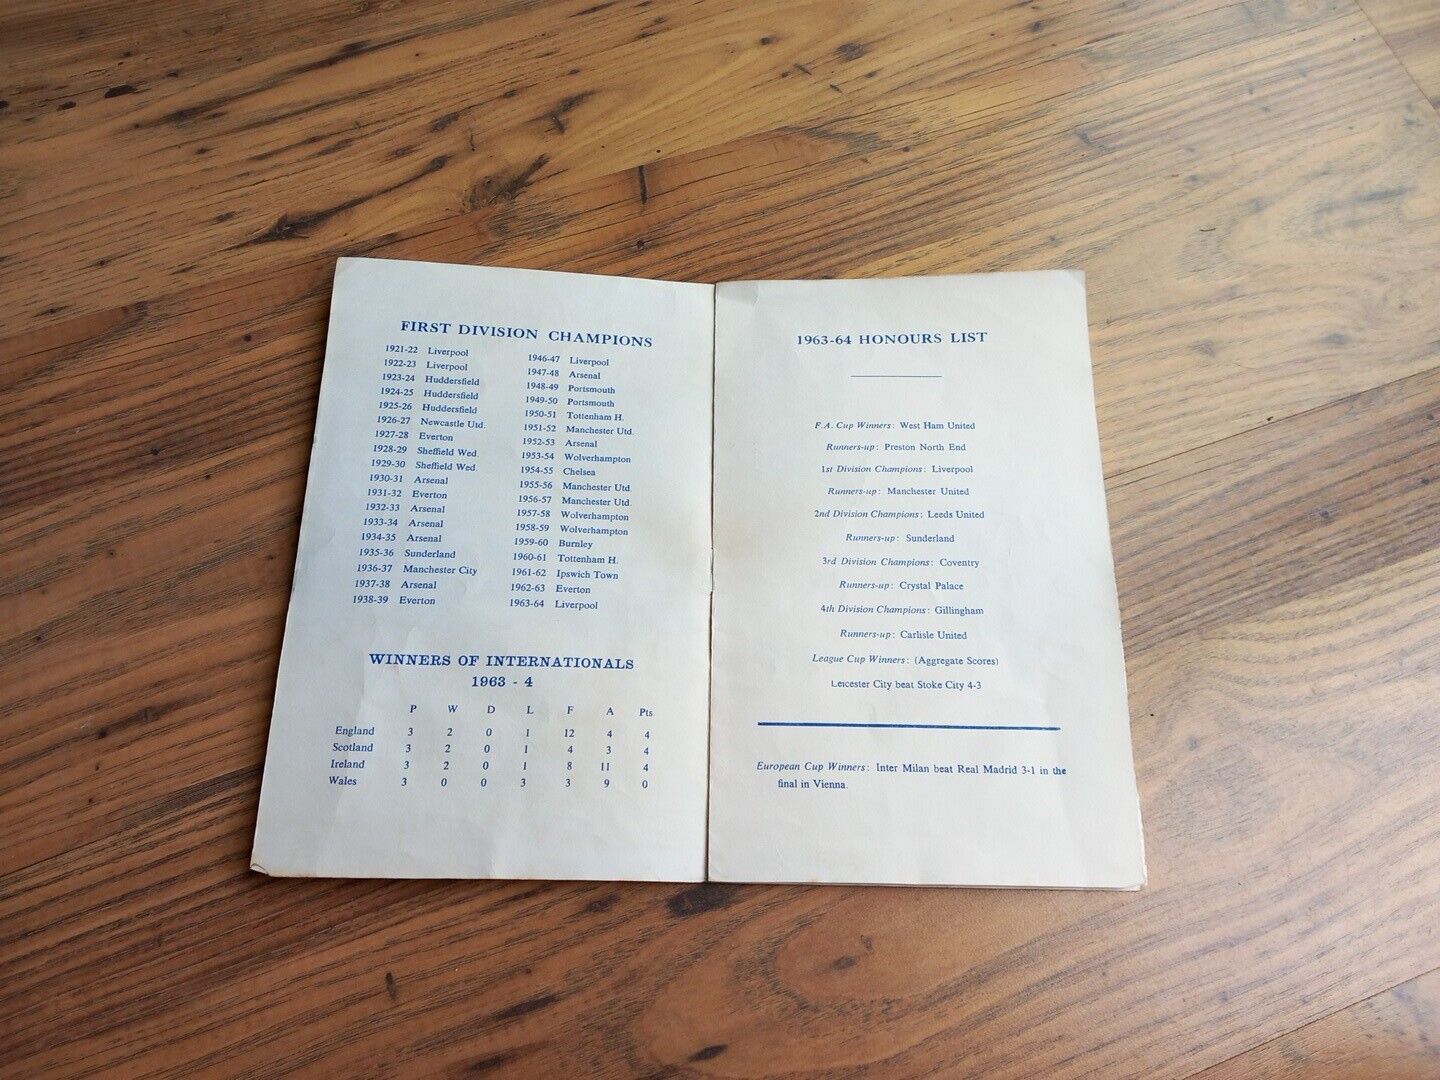 FIRST DIVISION CHAMPIONS
1921-22 Liverpool
1922-23 Liverpool
1923-24 Huddersfield
1924-25 Huddersfield
1925-26 Huddersfield
1926-27 Newcastle Utd.
1927-28 Everton
1928-29 Sheffield Wed.
1929-30 Sheffield Wed.
1930-31 Arsenal
1931-32 Everton
1932-33 Arsenal
1933-34 Arsenal
1934-35 Arsenal
1935-36 Sunderland
1936-37 Manchester City
1937-38 Arsenal
1938-39 Everton
1946-47 Liverpool
1947-48 Arsenal
1948-49 Portsmouth
1949-50 Portsmouth
1950-51 Tottenham H.
1951-52 Manchester Utd.
1952-53 Arsenal
1953-54 Wolverhampton
1954-55 Chelsea
1955-56 Manchester Utd.
1956-57 Manchester Utd.
1957-58 Wolverhampton
1958-59 Wolverhampton
1959-60 Burnley
1960-61 Tottenham H.
1961-62 Ipswich Town
1962-63 Everton
1963-64 Liverpool
WINNERS OF INTERNATIONALS
1963 - 4
P W D L F A Pts
England 3 2 0 1 12 4 4
Scotland 3 2 0 1 4 3 4
Ireland 3 2 0 1 8 11 4
Wales 3 0 0 3 3 9 0
1963-64 HONOURS LIST
F.A. Cup Winners: West Ham United
Runners-up: Preston North End
1st Division Champions: Liverpool
Runners-up: Manchester United
2nd Division Champions: Leeds United
Runners-up: Sunderland
3rd Division Champions: Coventry
Runners-up: Crystal Palace
4th Division Champions: Gillingham
Runners-up: Carlisle United
League Cup Winners: (Aggregate Scores)
Leicester City beat Stoke City 4-3
European Cup Winners: Inter Milan beat Real Madrid 3-1 in the
final in Vienna.